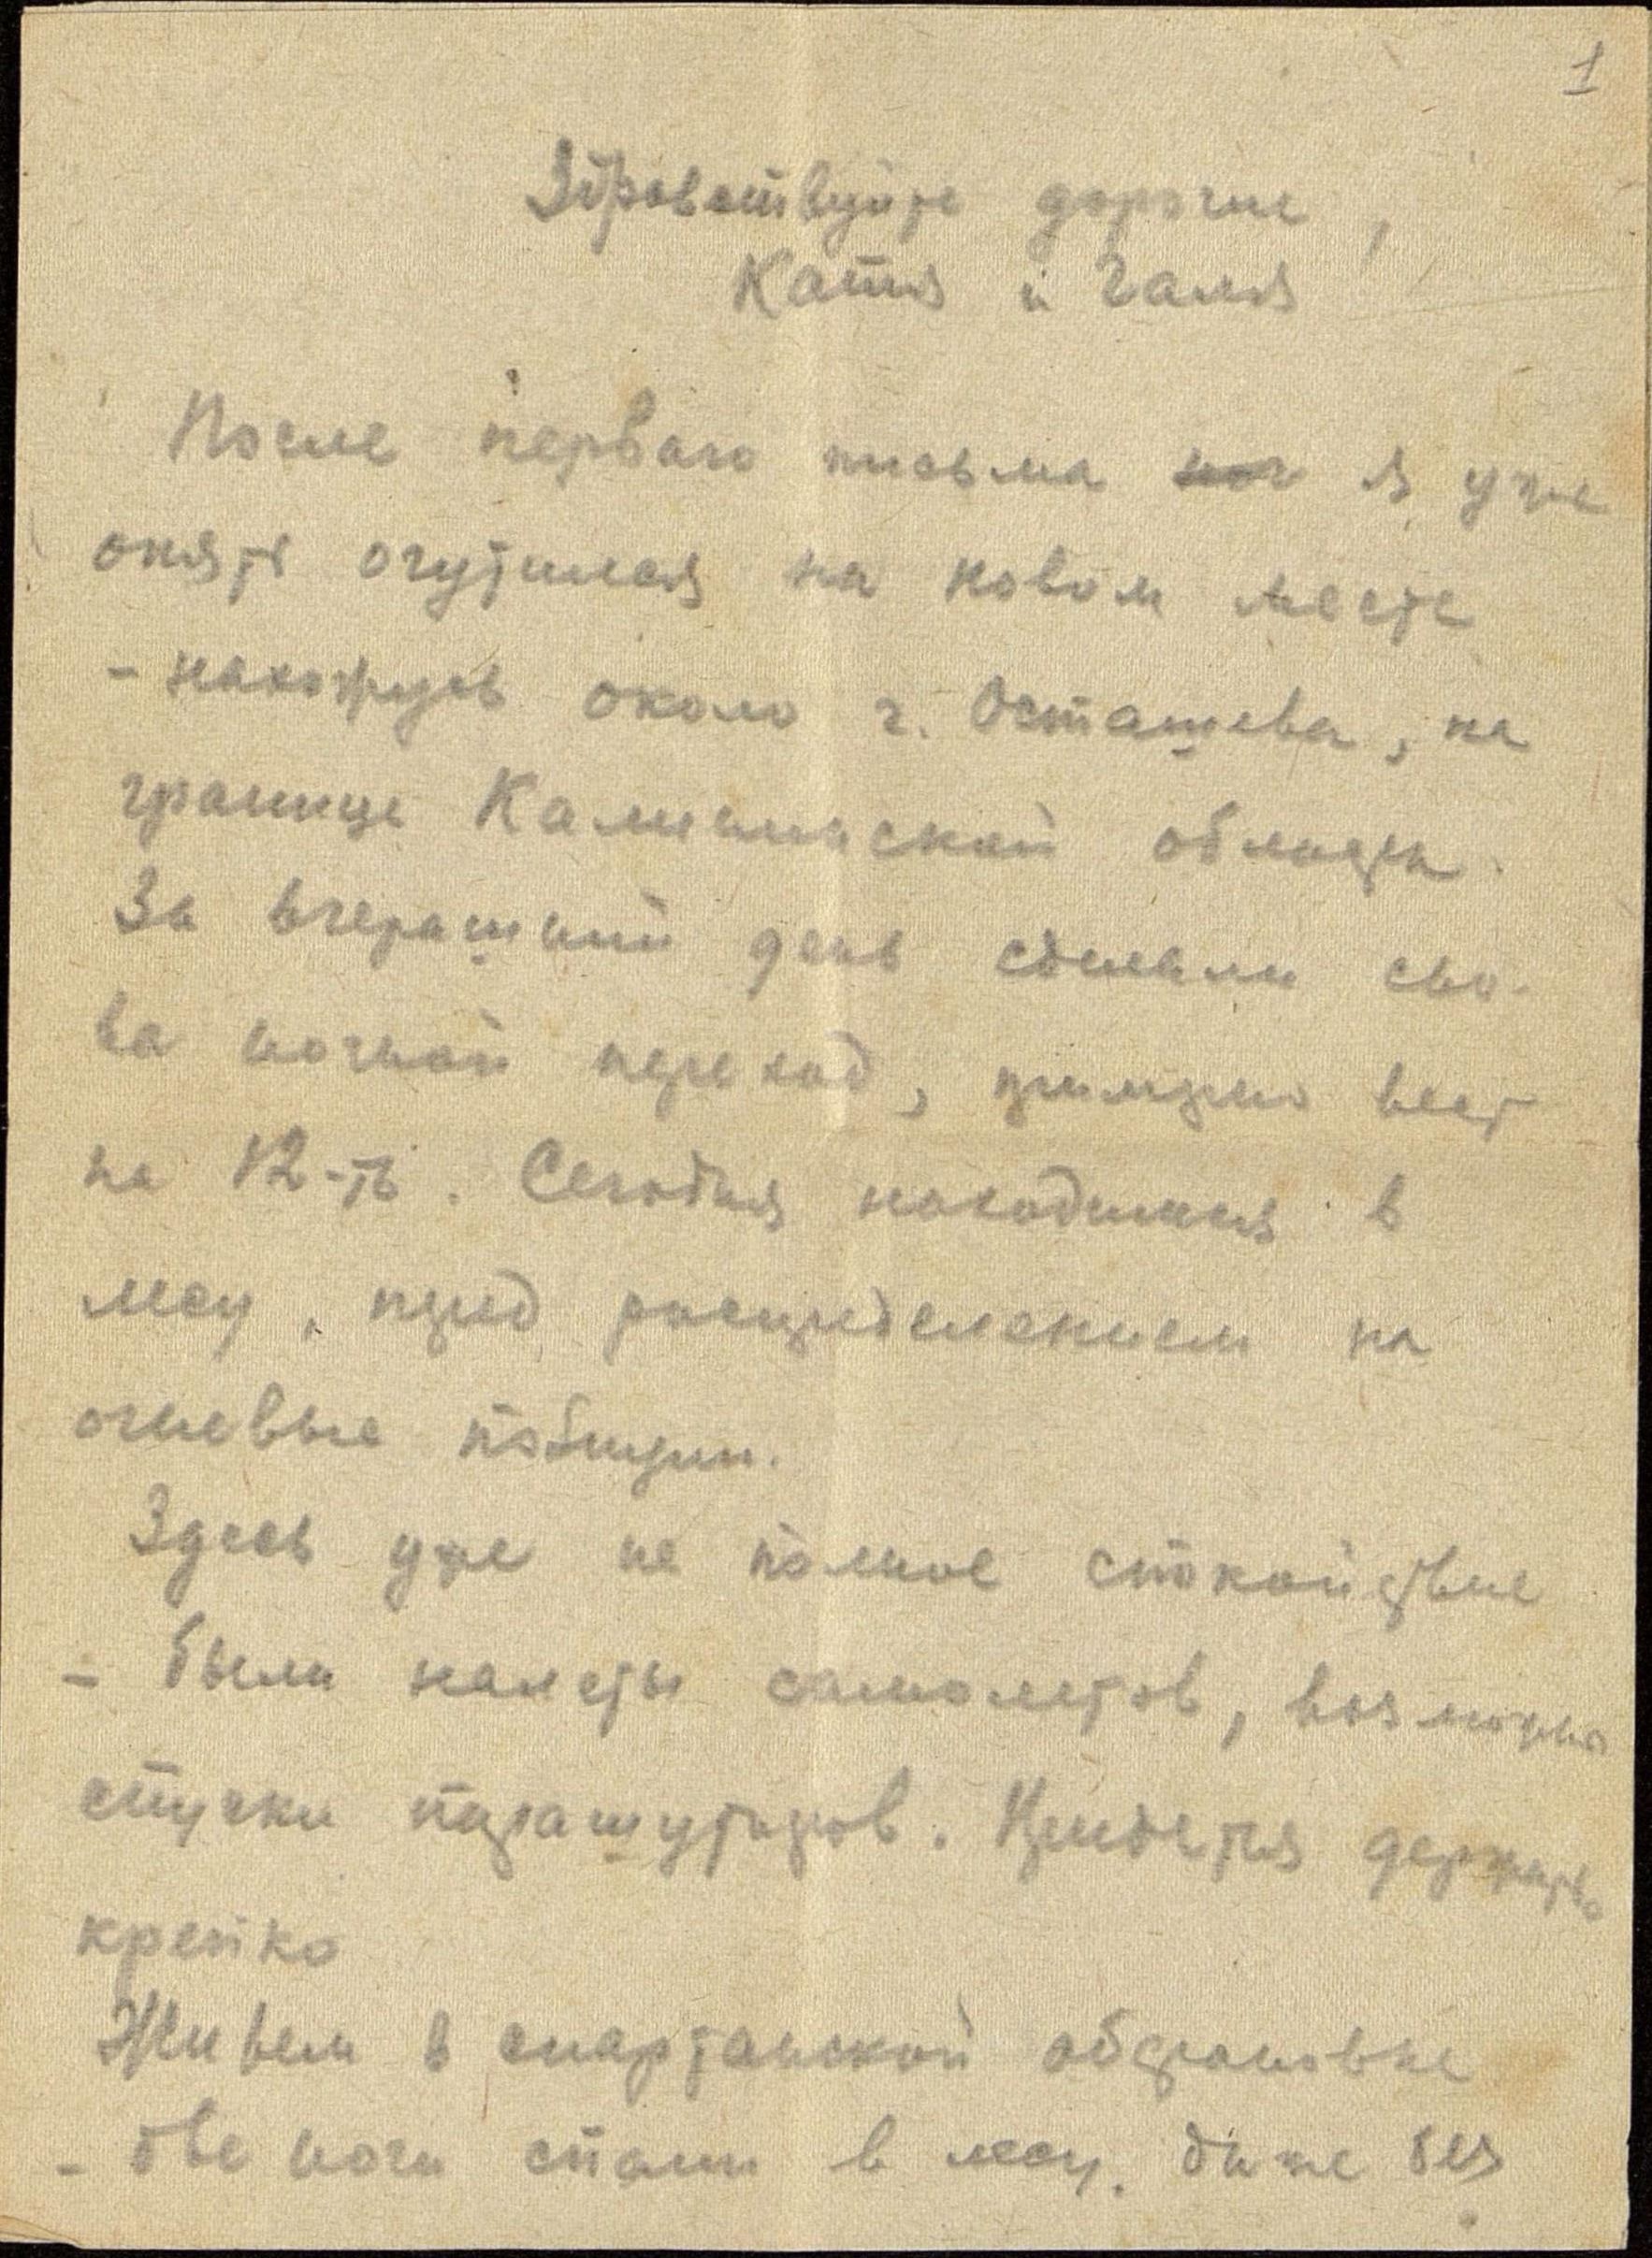 1
Здравствуйте дорогие,
Катя и Галя
После первого письма я уже
опять очутился на новом месте
- нахожусь около г. Осташева, на
границе Калининской области.
За вчерашний день сделали сно-
ва ночной переход, километров
на 12-ть. Сегодня находимся в
лесу, перед распределением на
огневые позиции.
Здесь уже не полное спокойствие
- были налеты самолетов, возможно
спуски парашутистов. Придется держать
крепко
Живем в спартанской обстановке
- две ночи спали в лесу, даже без